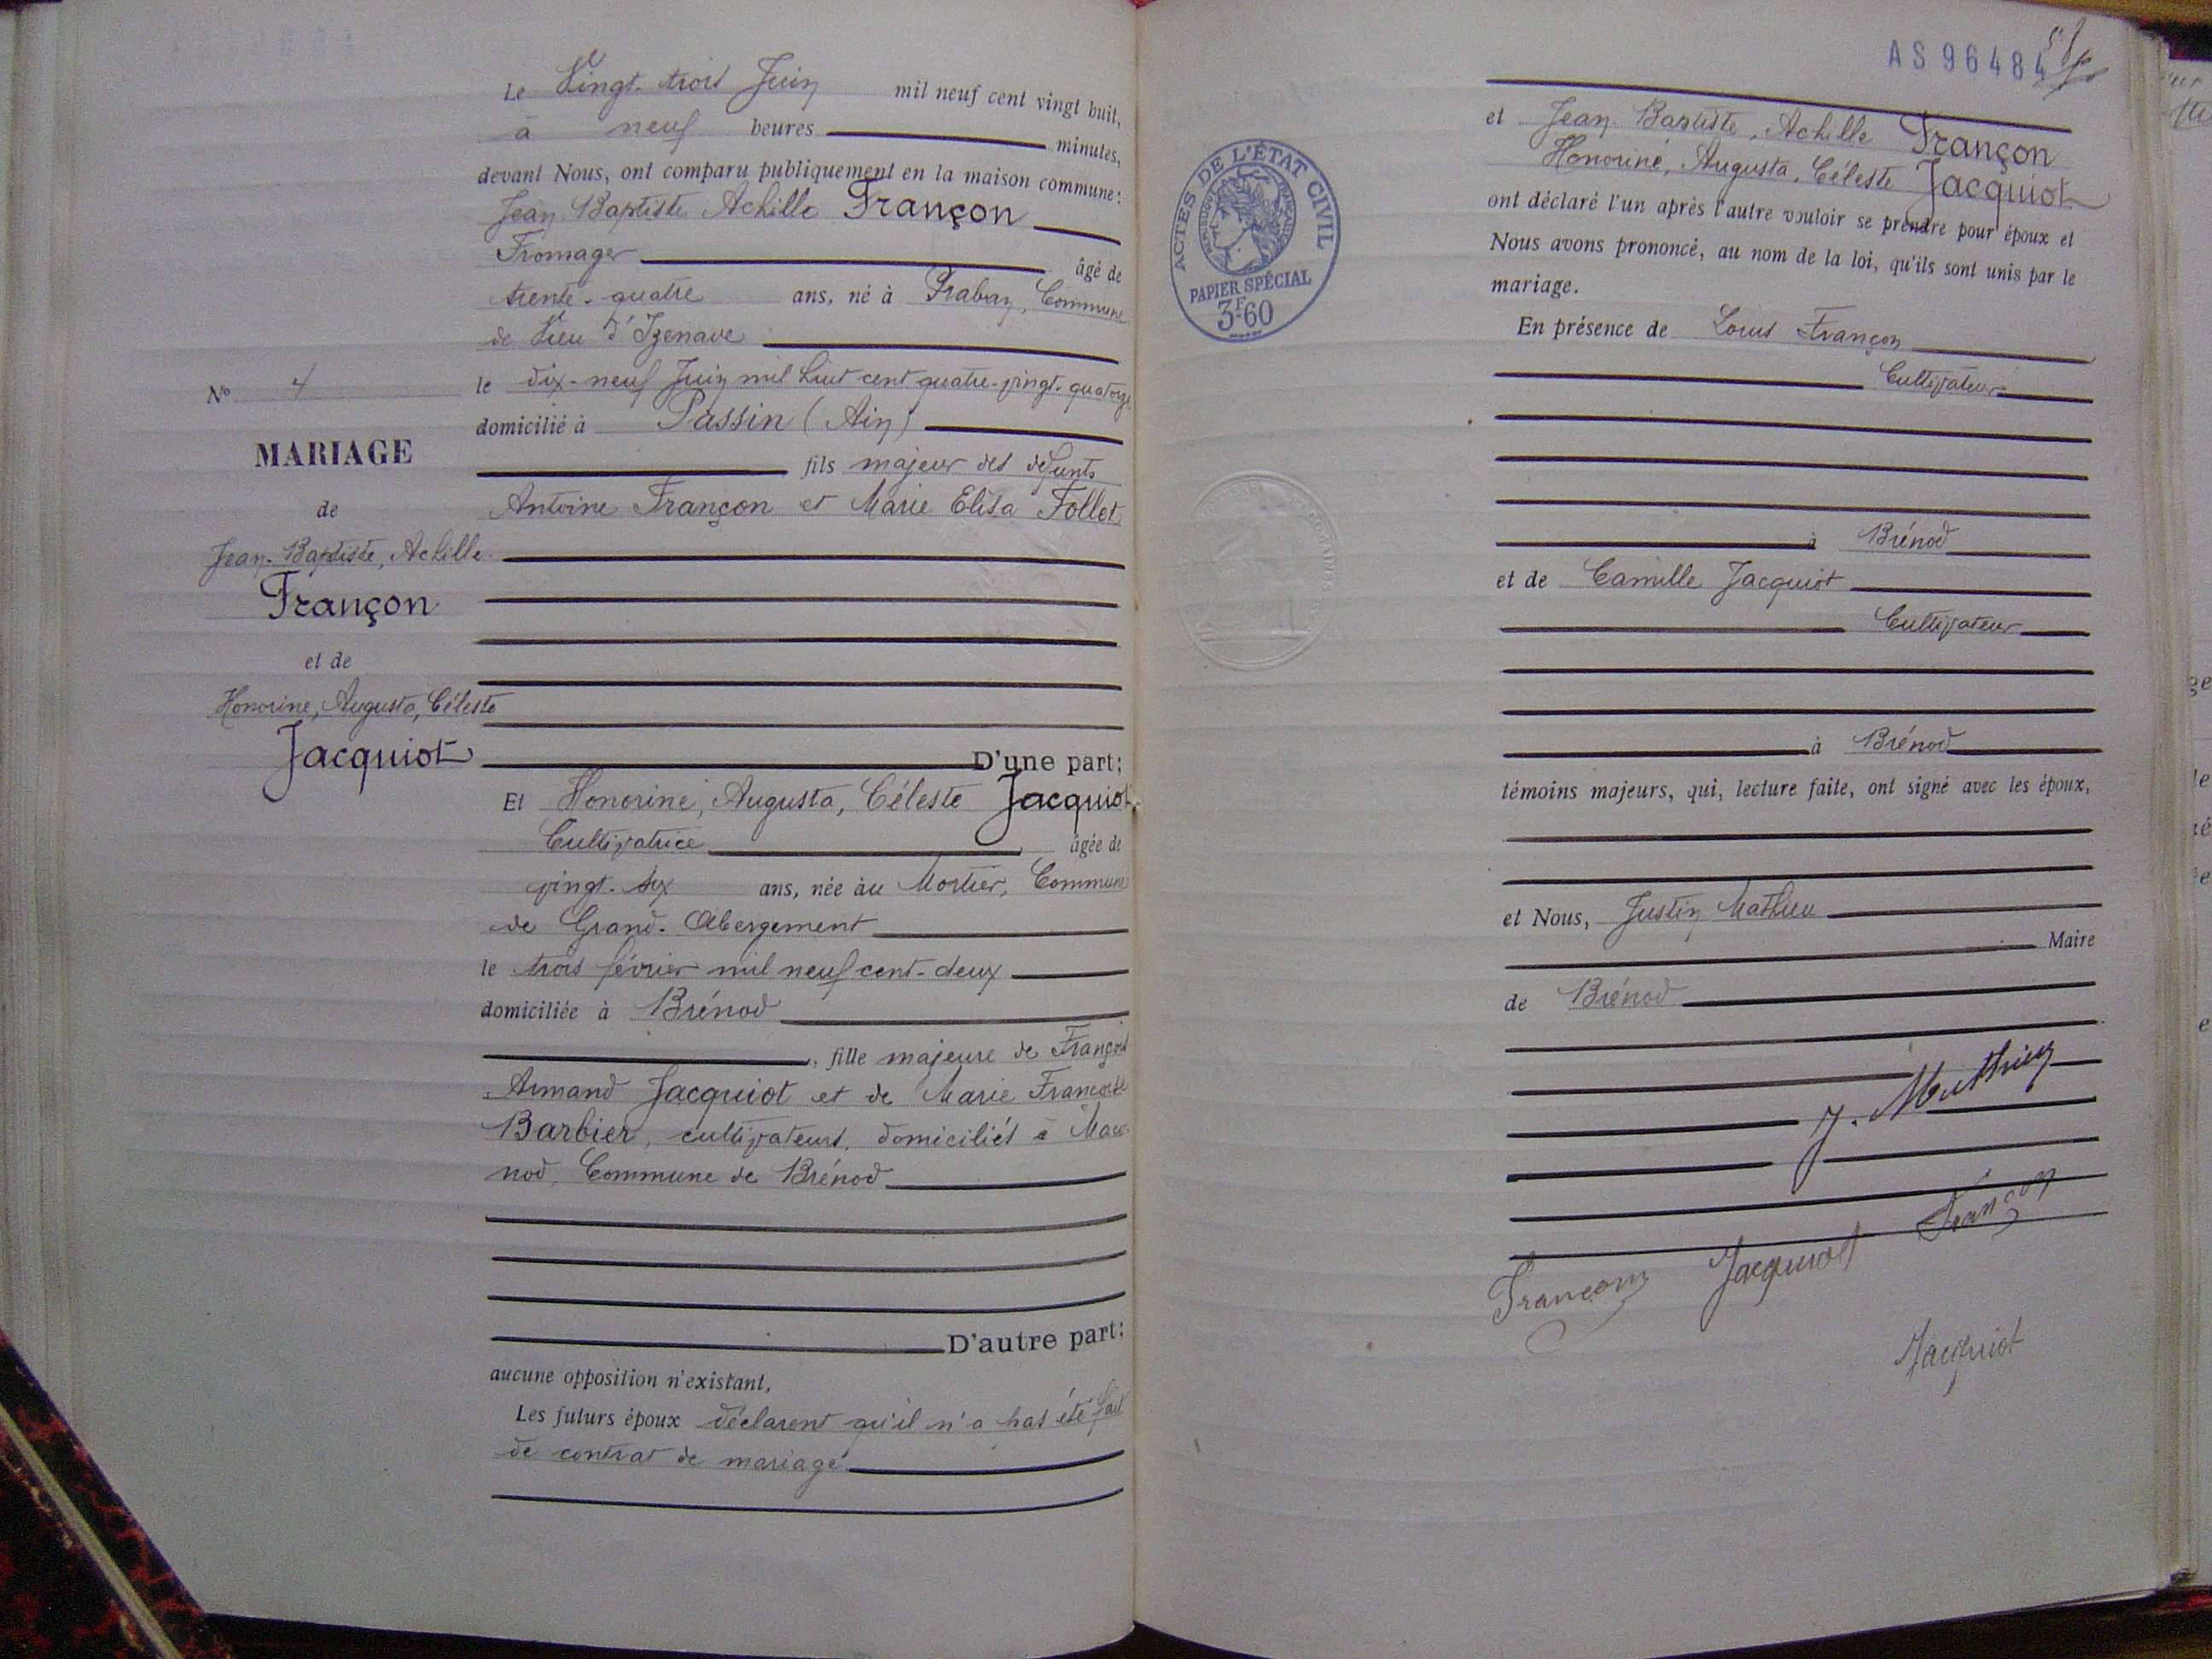 Le Vingt-trois Juin mil neuf cent vingt huit,
à neuf heures minutes,
devant Nous, ont comparu publiquement en la maison commune:
Jean Baptiste Achille Françon
Fromager âgé de
trente-quatre ans, né à Commune
de Vieu d'Izenave
le dix-neuf Juin mil huit cent quatre-vingt-quatorze
domicilié à Passin (Ain)
fils majeur des défunts
Antoine Françon et Marie Elisa Follet
D'une part;
Et Honorine, Augusta, Céleste Jacquiot
Cultivatrice âgée de
vingt-six ans, née au Mortier, Commune
de Grand-Abergement
le trois février mil neuf cent-deux
domiciliée à Brénod
, fille majeure de François
Armand Jacquiot et de Marie Francoise
Barbier, cultivateurs, domiciliés à Maco-
nod, Commune de Brénod
D'autre part;
aucune opposition n'existant,
Les futurs époux déclarent qu'il n'a pas été fait
de contrat de mariage
No 4
MARIAGE
de
Jean-Baptiste, Achille
Françon
et de
Honorine, Augusta, Céleste
Jacquiot
AS 96484
ACTES DE L'ÉTAT CIVIL
PAPIER SPÉCIAL
3F60
et Jean Baptiste, Achille Françon
Honorine, Augusta, Céleste Jacquiot
ont déclaré l'un après l'autre vouloir se prendre pour époux et
Nous avons prononcé, au nom de la loi, qu'ils sont unis par le
mariage.
En présence de Louis Françon
Cultivateur
à Brénod
et de Camille Jacquiot
Cultivateur
à Brénod
témoins majeurs, qui, lecture faite, ont signé avec les époux,
et Nous, Justin Mathieu
Maire
de Brénod
J. Mathieu
Françon
Françon Jacquiot
Jacquiot